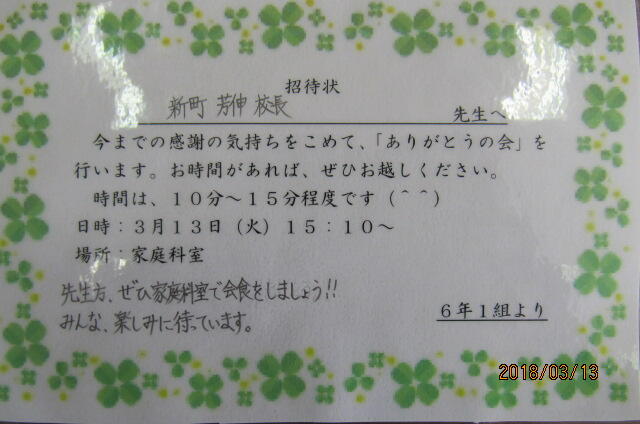 招待状
新町 芳伸 校長 先生へ
今までの感謝の気持ちをこめて、「ありがとうの会」を
行います。お時間があれば、ぜひお越しください。
時間は、１０分～１５分程度です（＾＾）
日時：３月１３日（火）１５：１０～
場所：家庭科室
先生方、ぜひ家庭科室で会食をしましょう!!
みんな、楽しみに待っています。
６年１組より
2018/03/13